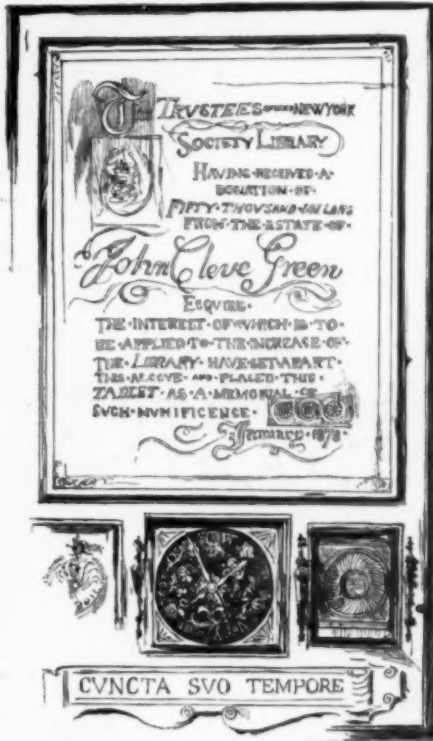 The TRVSTEES OF THE NEW YORK
SOCIETY LIBRARY
HAVING·RECEIVED·A·
DONATION·OF·
FIFTY·THOUSAND·DOLLARS
FROM·THE·ESTATE·OF·
John Cleve Green
ESQUIRE·
THE·INTEREST·OF·WHICH·IS·TO·
BE·APPLIED·TO·THE·INCREASE·OF·
THE·LIBRARY·HAVE·SET·APART·
THIS·ALCOVE·AND·PLACED·THIS·
TABLET·AS·A·MEMORIAL·OF
SVCH·MVNIFICENCE·
January·1878·
CVNCTA SVO TEMPORE